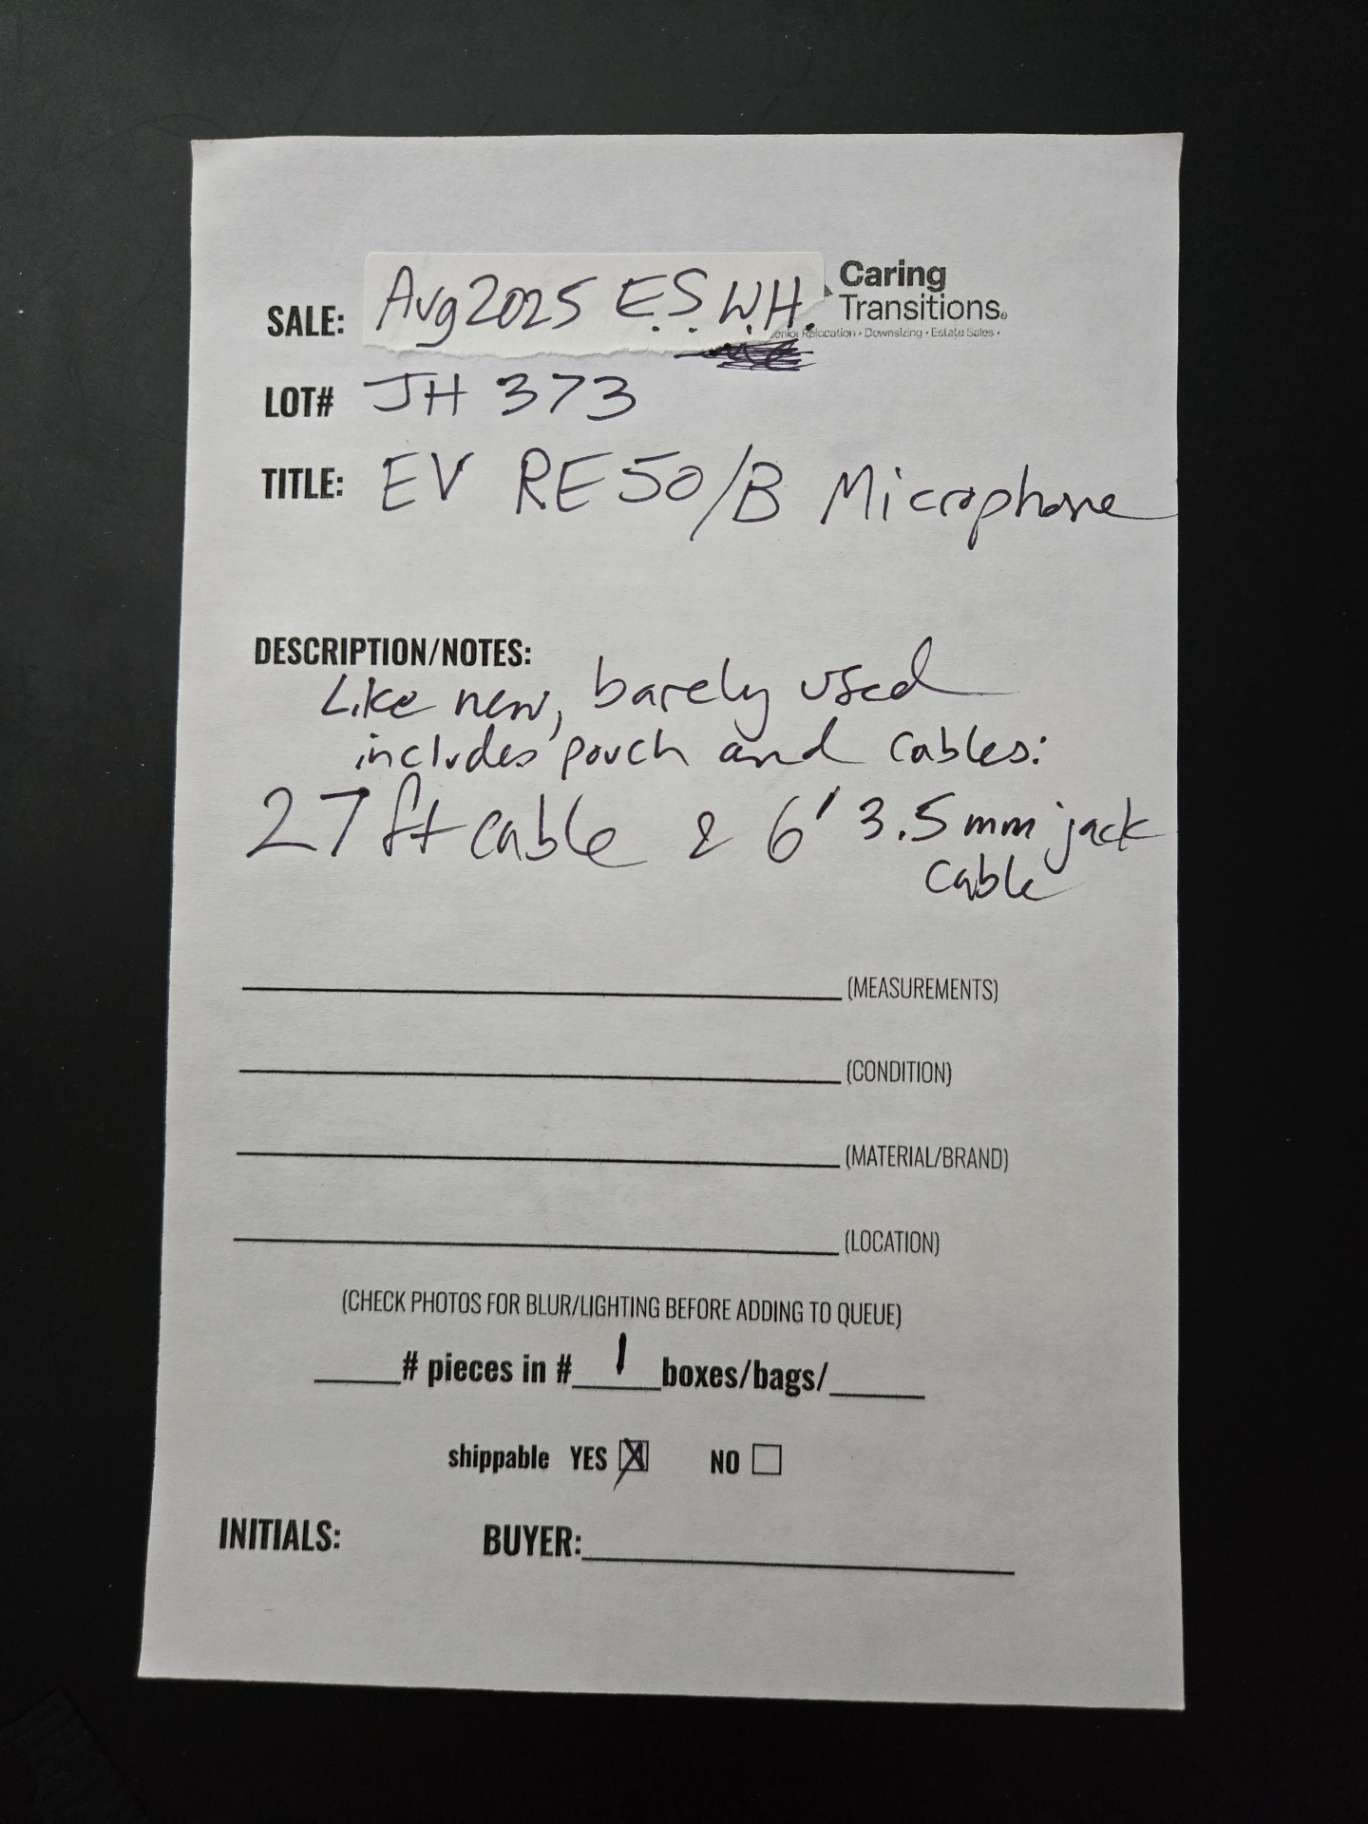 SALE: Aug 2025 E.S. W.H. Caring
Transitions®
Senior Relocation • Downsizing • Estate Sales •
LOT# JH 373
TITLE: EV RE50/B Microphone
DESCRIPTION/NOTES:
Like new, barely used
includes pouch and cables:
27 ft cable & 6' 3.5 mm jack
cable
(MEASUREMENTS)
(CONDITION)
(MATERIAL/BRAND)
(LOCATION)
(CHECK PHOTOS FOR BLUR/LIGHTING BEFORE ADDING TO QUEUE)
____# pieces in #__1__boxes/bags/_____
shippable YES ☒ NO ☐
INITIALS: BUYER: